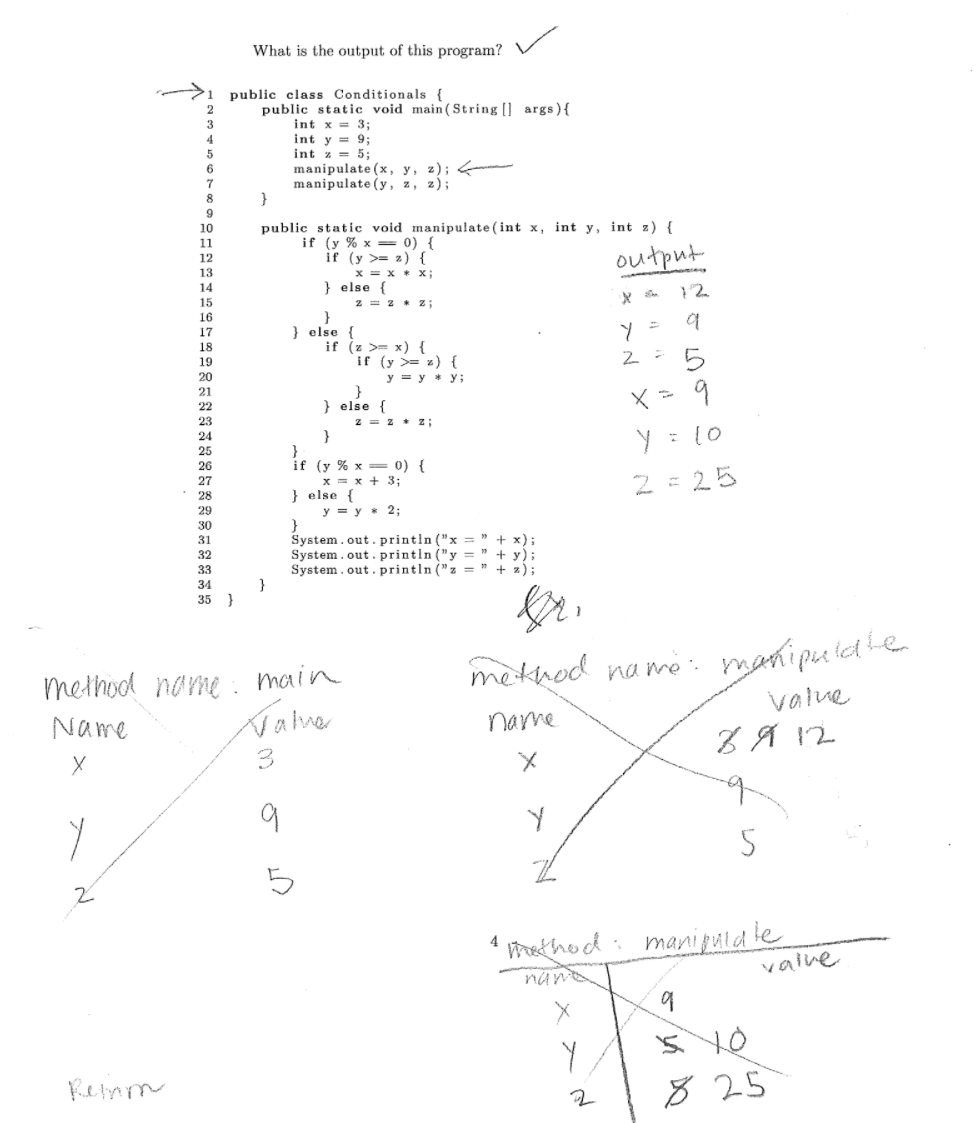 What is the output of this program? ✓
1 public class Conditionals {
2 public static void main(String[] args){
3 int x = 3;
4 int y = 9;
5 int z = 5;
6 manipulate(x, y, z);
7 manipulate(y, z, z);
8 }
9
10 public static void manipulate(int x, int y, int z) {
11 if (y % x == 0) {
12 if (y >= z) {
13 x = x * x;
14 } else {
15 z = z * z;
16 }
17 } else {
18 if (z >= x) {
19 if (y >= z) {
20 y = y * y;
21 }
22 } else {
23 z = z * z;
24 }
25 }
26 if (y % x == 0) {
27 x = x + 3;
28 } else {
29 y = y * 2;
30 }
31 System.out.println("x = " + x);
32 System.out.println("y = " + y);
33 System.out.println("z = " + z);
34 }
35 }
output
x = 12
y = 9
z = 5
x = 9
y = 10
z = 25
method name: main
Name Value
x 3
y 9
z 5
method name: manipulate
name value
x 3 9 12
y 9
z 5
4
method: manipulate
name value
x 9
y 5 10
z 5 25
Return